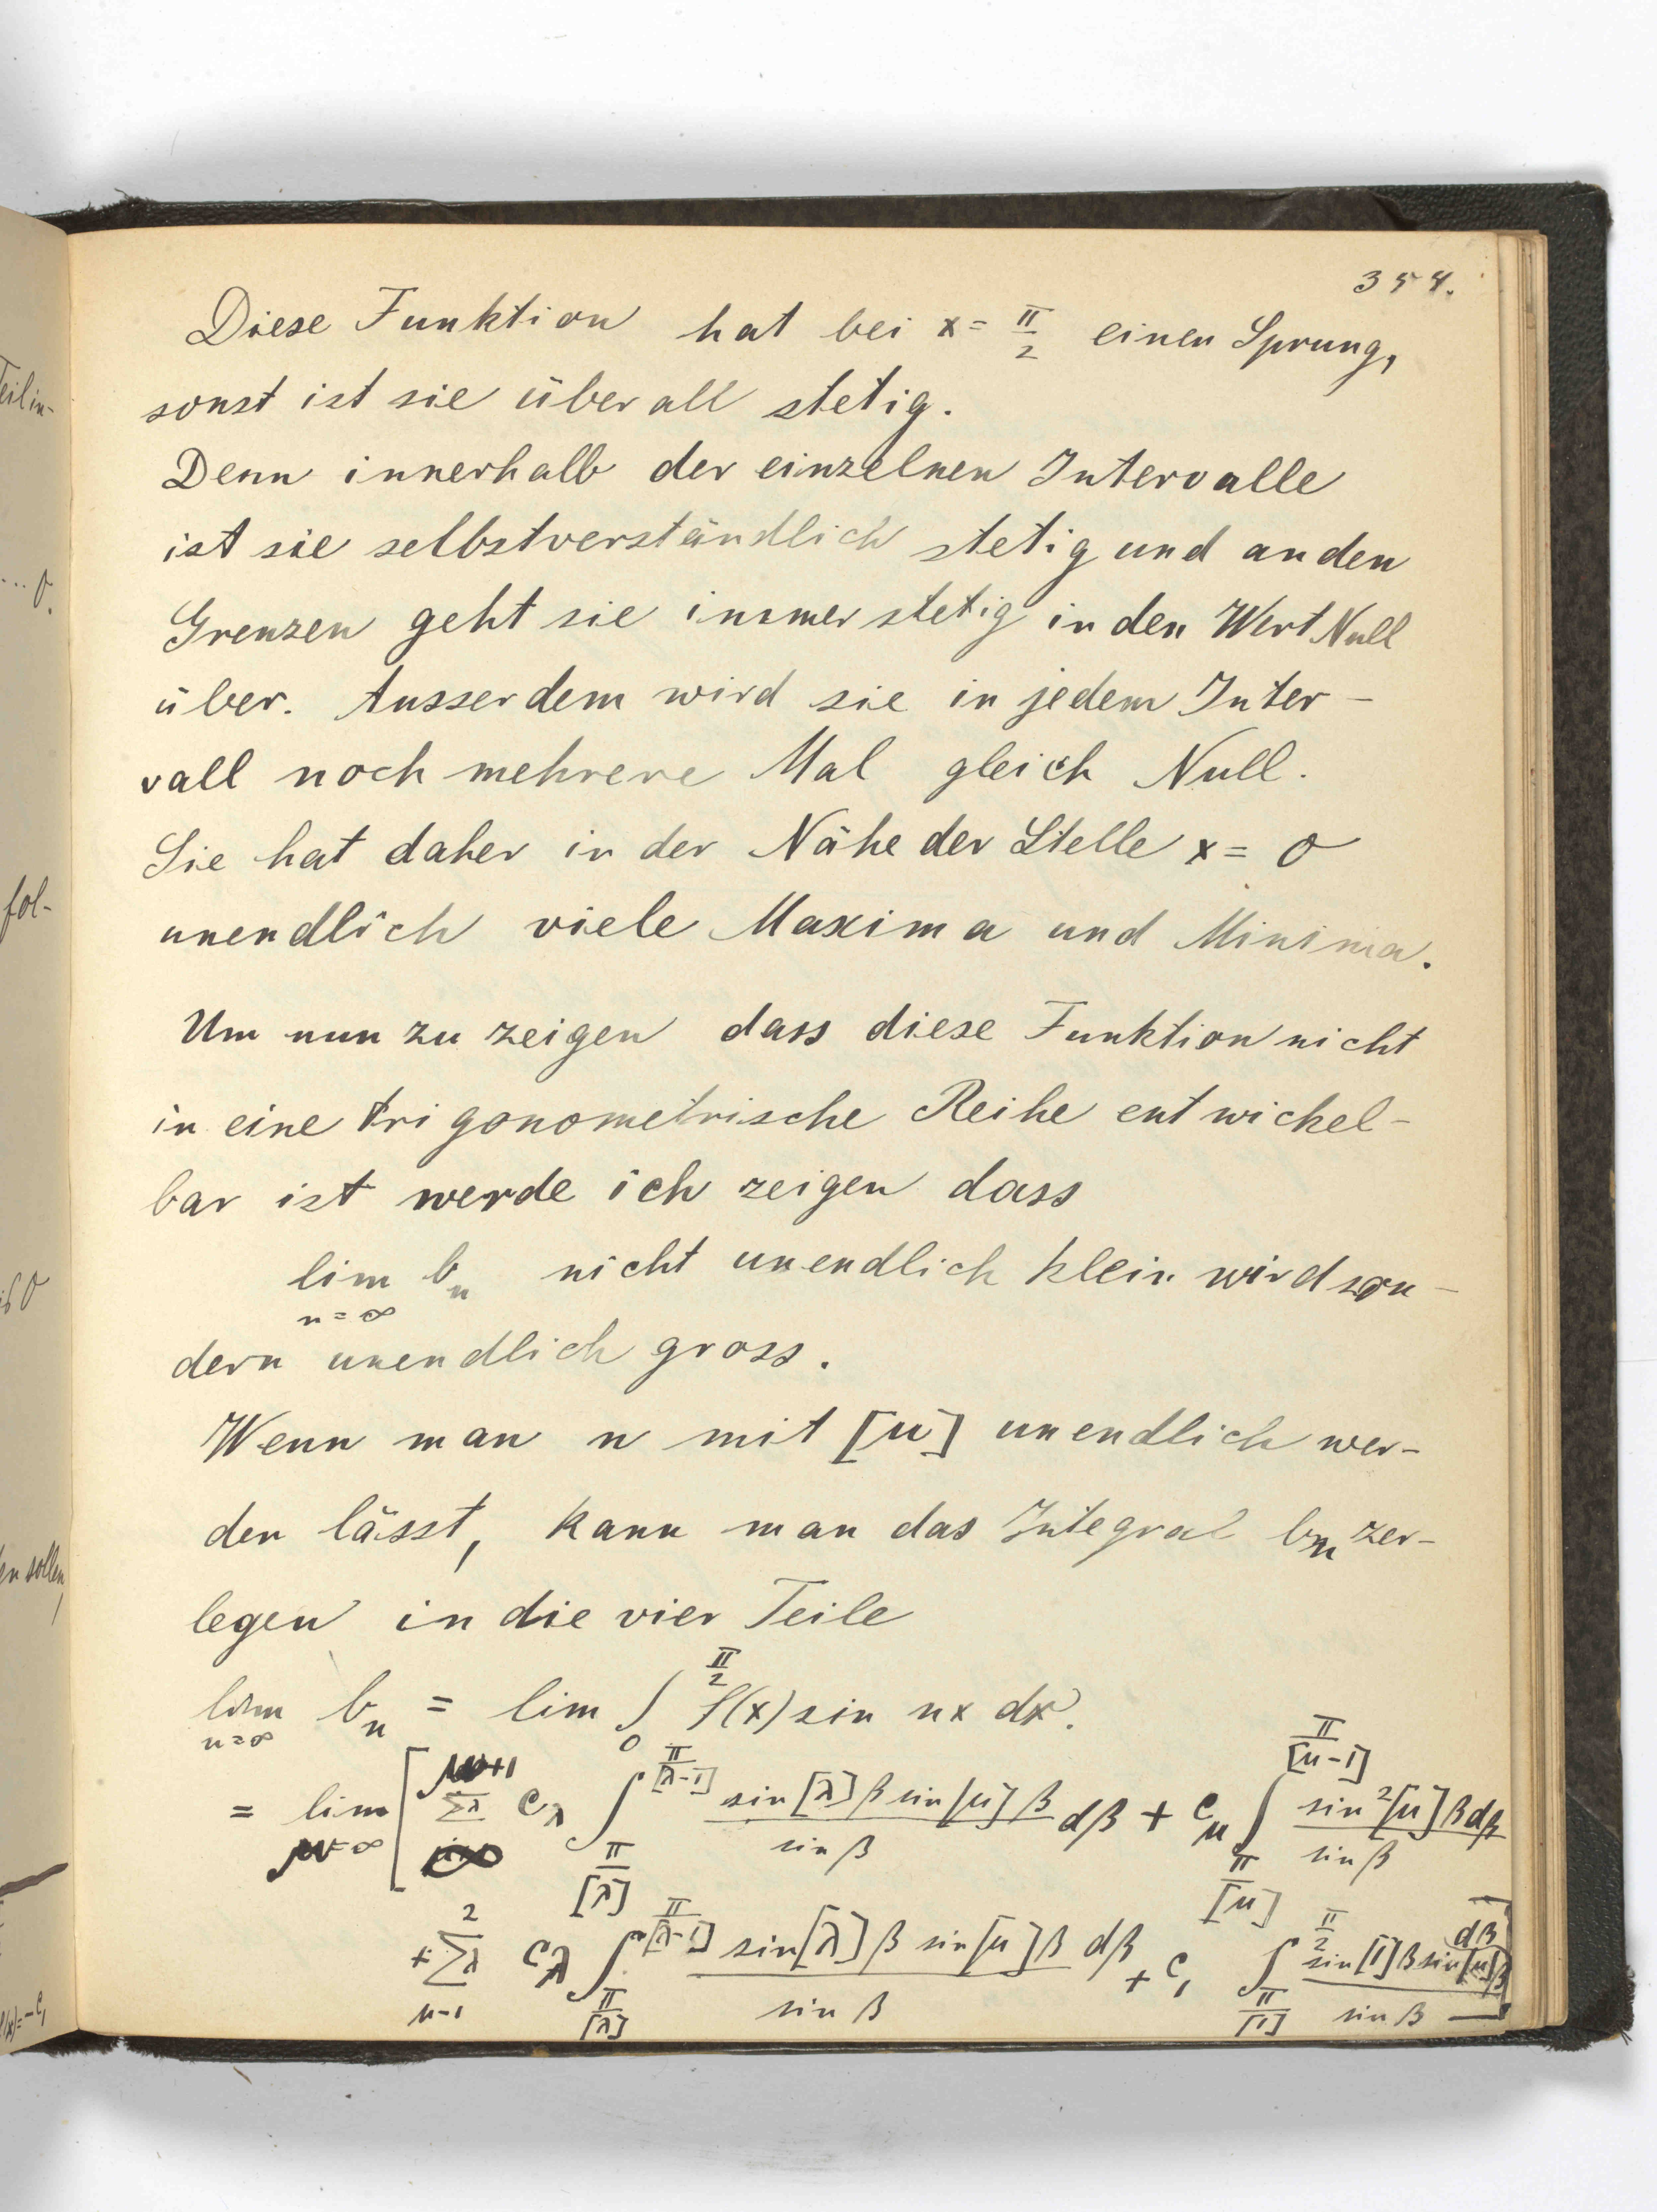 354.
Diese Funktion hat bei x = π/2 einen Sprung,
sonst ist sie überall stetig.
Denn innerhalb der einzelnen Intervalle
ist sie selbstverständlich stetig und an den
Grenzen geht sie immer stetig in den Wert Null
über. Ausserdem wird sie in jedem Inter-
vall noch mehrere Mal gleich Null.
Sie hat daher in der Nähe der Stelle x = 0
unendlich viele Maxima und Minima.
Um nun zu zeigen dass diese Funktion nicht
in eine trigonometrische Reihe entwickel-
bar ist werde ich zeigen dass
lim b_n nicht unendlich klein wird son-
n=∞
dern unendlich gross.
Wenn man n mit [μ] unendlich wer-
den lässt, kann man das Integral b_n zer-
legen in die vier Teile
lim_{n=∞} b_n = lim ∫_0^{π/2} f(x) sin nx dx.
= lim_{μ=∞} [ Σ_λ^{μ+1} c_λ ∫_{π/[λ]}^{π/[λ-1]} sin[λ]β sin[μ]β / sin β dβ + c_μ ∫_{π/[μ]}^{π/[μ-1]} sin²[μ]β dβ / sin β
+ Σ_λ^2_{μ-1} c_λ ∫_{π/[λ]}^{π/[λ-1]} sin[λ]β sin[μ]β dβ / sin β + c_1 ∫_{π/[1]}^{π/2} sin[1]β sin[μ]β dβ / sin β ]
eil in-
... 0.
fol-
is 0
en sollen,
f(x)=-c_1